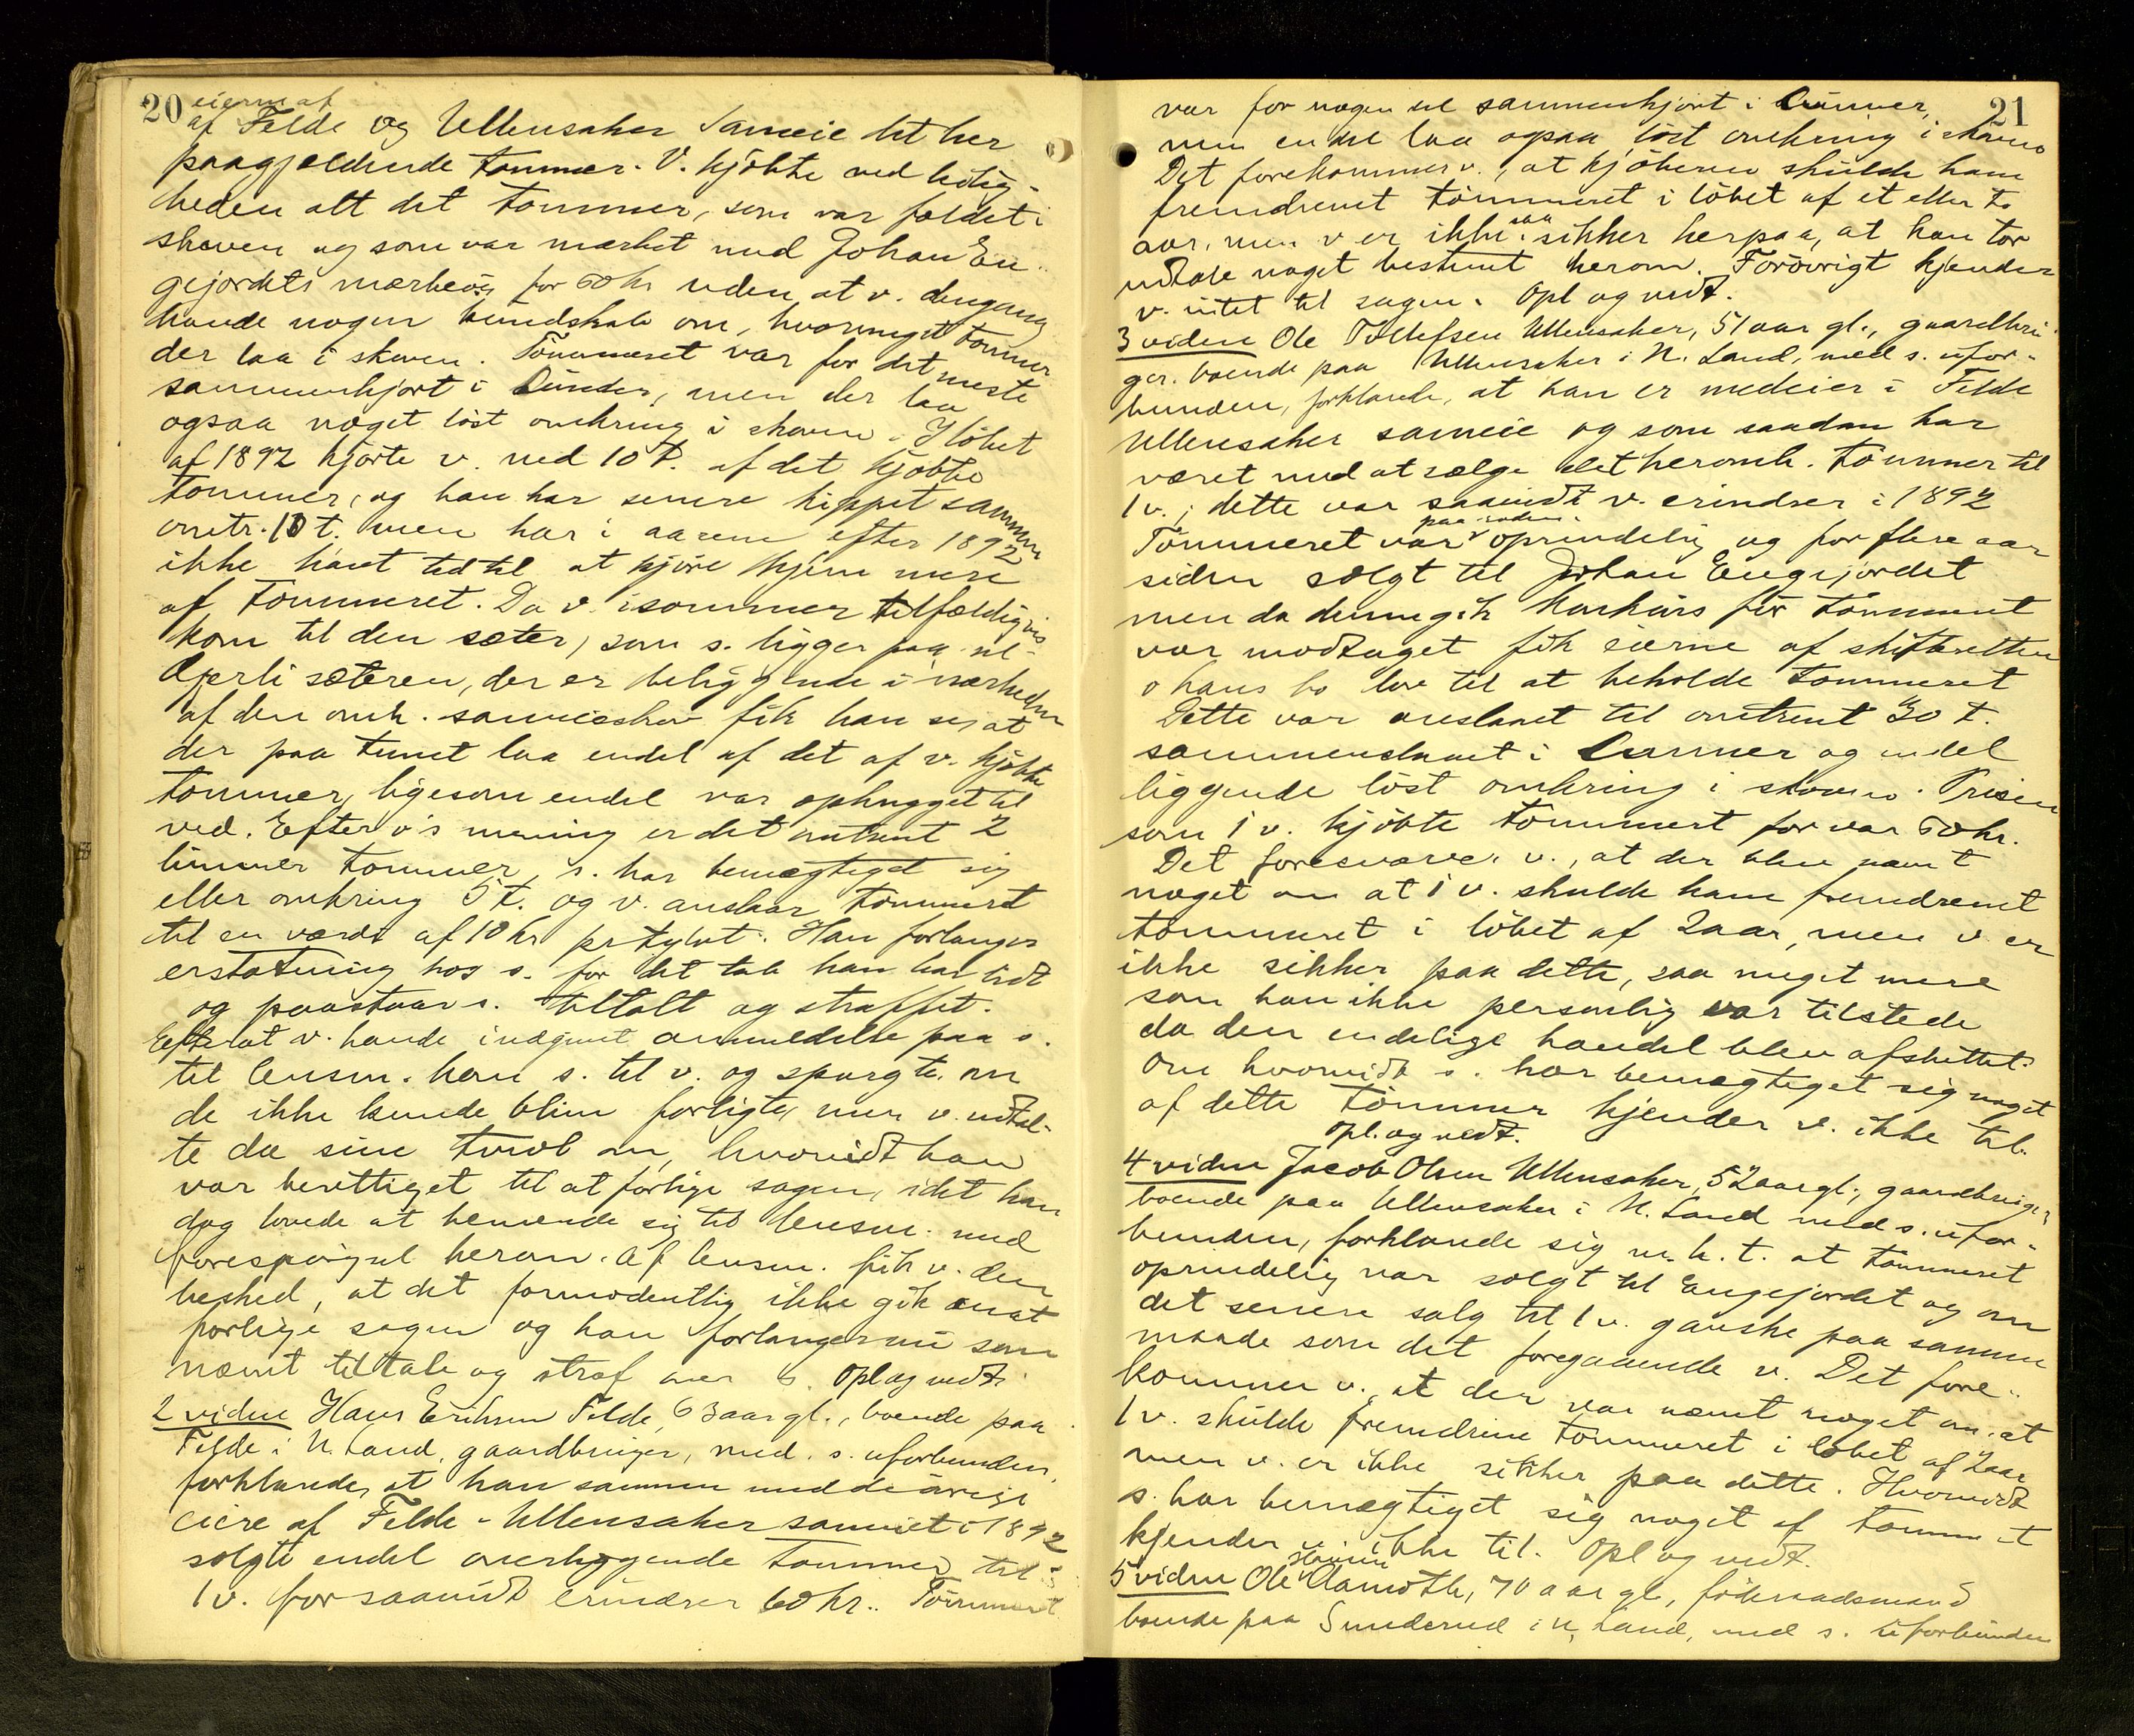 20
eierne af
af Felde og Ullensaker Sameie det her
paagjældende tømmer. V. kjøbte ved leilig-
heden alt det tømmer, som var fældet i
skoven og som var mærket med Johan En-
gejordets mærke og for 60 kr uden at v. dengang
havde nogen kundskab om, hvormeget tømmer
der laa i skoven. Tømmeret var for det meste
sammenkjørt i lunder, men der laa
ogsaa noget løst omkring i skoven. I løbet
af 1892 kjørte v. ned 10 t. af det kjøbte
tømmer, og han har senere kippet sammen
omtr. 10 t. men har i aarene efter 1892
ikke havt tid til at kjøre hjem mere
af tømmeret. Da v. isommer tilfældigvis
kom til den sæter, som s. ligger paa
sæteren, der er beliggende i nærheden
af den omh. sameieskov fik han se, at
der paa tunet laa endel af det af v. kjøbte
tømmer, ligesom endel var ophugget til
ved. Efter v's mening er det omtrent 2
lunner tømmer, s. har bemægtiget sig
eller omkring 5 t. og v. anslaar tømmeret
til en værdi af 10 kr pr tylvt. Han forlanger
erstatning hos s. for det tab han har lidt
og paastaar s. tiltalt og straffet.
Efterat v. havde indgivet anmeldelse paa s.
til lensm. kom s. til v. og spurgte om
de ikke kunde blive forligte, men v. udtal-
te da sine tvivl om, hvorvidt han
var berettiget til at forlige sagen, idet han
dog lovede at henvende sig til lensm. med
forespørgsel herom. Af lensm. fik v. den
besked, at det formodentlig ikke gik an at
forlige sagen og han forlanger nu som
nævnt tiltale og straf over s. Opl og vedt.
2 vidne Hans Eriksen Felde, 63 aar gl., boende paa
Felde i N. Land, gaardbruger, med s. uforbunden,
forklarede, at han sammen med de øvrige
eiere af Felde-Ullensaker sameiet i 1892
solgte endel overliggende tømmer til
1 v. for saavidt erindrer 60 kr. Tømmeret
21
var for nogen del sammenkjørt i Lunner,
men en del laa ogsaa løst omkring i skoven
Det forekommer v., at kjøberen skulde have
fremdrevet tømmeret i løbet af et eller to
aar, men v er ikke saa sikker herpaa, at han tør
udtale noget bestemt herom. Forøvrigt kjender
v. intet til sagen. Opl og vedt.
3 vidne Ole Tollefsen Ullensaker, 51 aar gl., gaardbru-
ger. boende paa Ullensaker i N. Land, med s. ufor-
bunden, forklarede, at han er medeier i Felde
Ullensaker sameie og som saadan har
været med at sælge det heromh. tømmer til
1 v.; dette var saavidt v. erindrer i 1892
Tømmeret var oprindelig og for flere aar
siden solgt til Johan Engejordet
men da denne gik konkurs før tømmeret
var modtaget fik eierne af skifteretten
i hans bo lov til at beholde tømmeret
Dette var anslaaet til omtrent 30 t.
sammenslaaet i Lunner og endel
liggende løst omkring i skoven. Prisen
som 1 v. kjøbte tømmeret for var 60 kr.
Det foresvæver v., at der blev nævnt
noget om at 1 v. skulde have fremdrevet
tømmeret i løbet af 2 aar, men v er
ikke sikker paa dette, saa meget mere
som han ikke personlig var tilstede
da den endelige handel blev afsluttet.
Om hvorvidt s. har bemægtiget sig noget
af dette tømmer kjender v. ikke til.
Opl. og vedt.
4 vidne Jacob Olsen Ullensaker, 52 aar gl., gaardbruger,
boende paa Ullensaker i N. Land med s. ufor-
bunden, forklarede sig m. h. t. at tømmeret
oprindelig var solgt til Engejordet og om
det senere salg til 1 v. ganske paa samme
maade som det foregaaende v. Det fore-
kommer v., at der var nævnt noget om, at
1 v. skulde fremdrive tømmeret i løbet af 2 aar
men v. er ikke sikker paa dette. Hvorvidt
s. har bemægtiget sig noget af tømmeret
kjender v. ikke til. Opl og vedt.
5 vidne Ole Aamoth, 70 aar gl., føderaadsmand
boende paa Sunderud i N. Land, med s. uforbunden